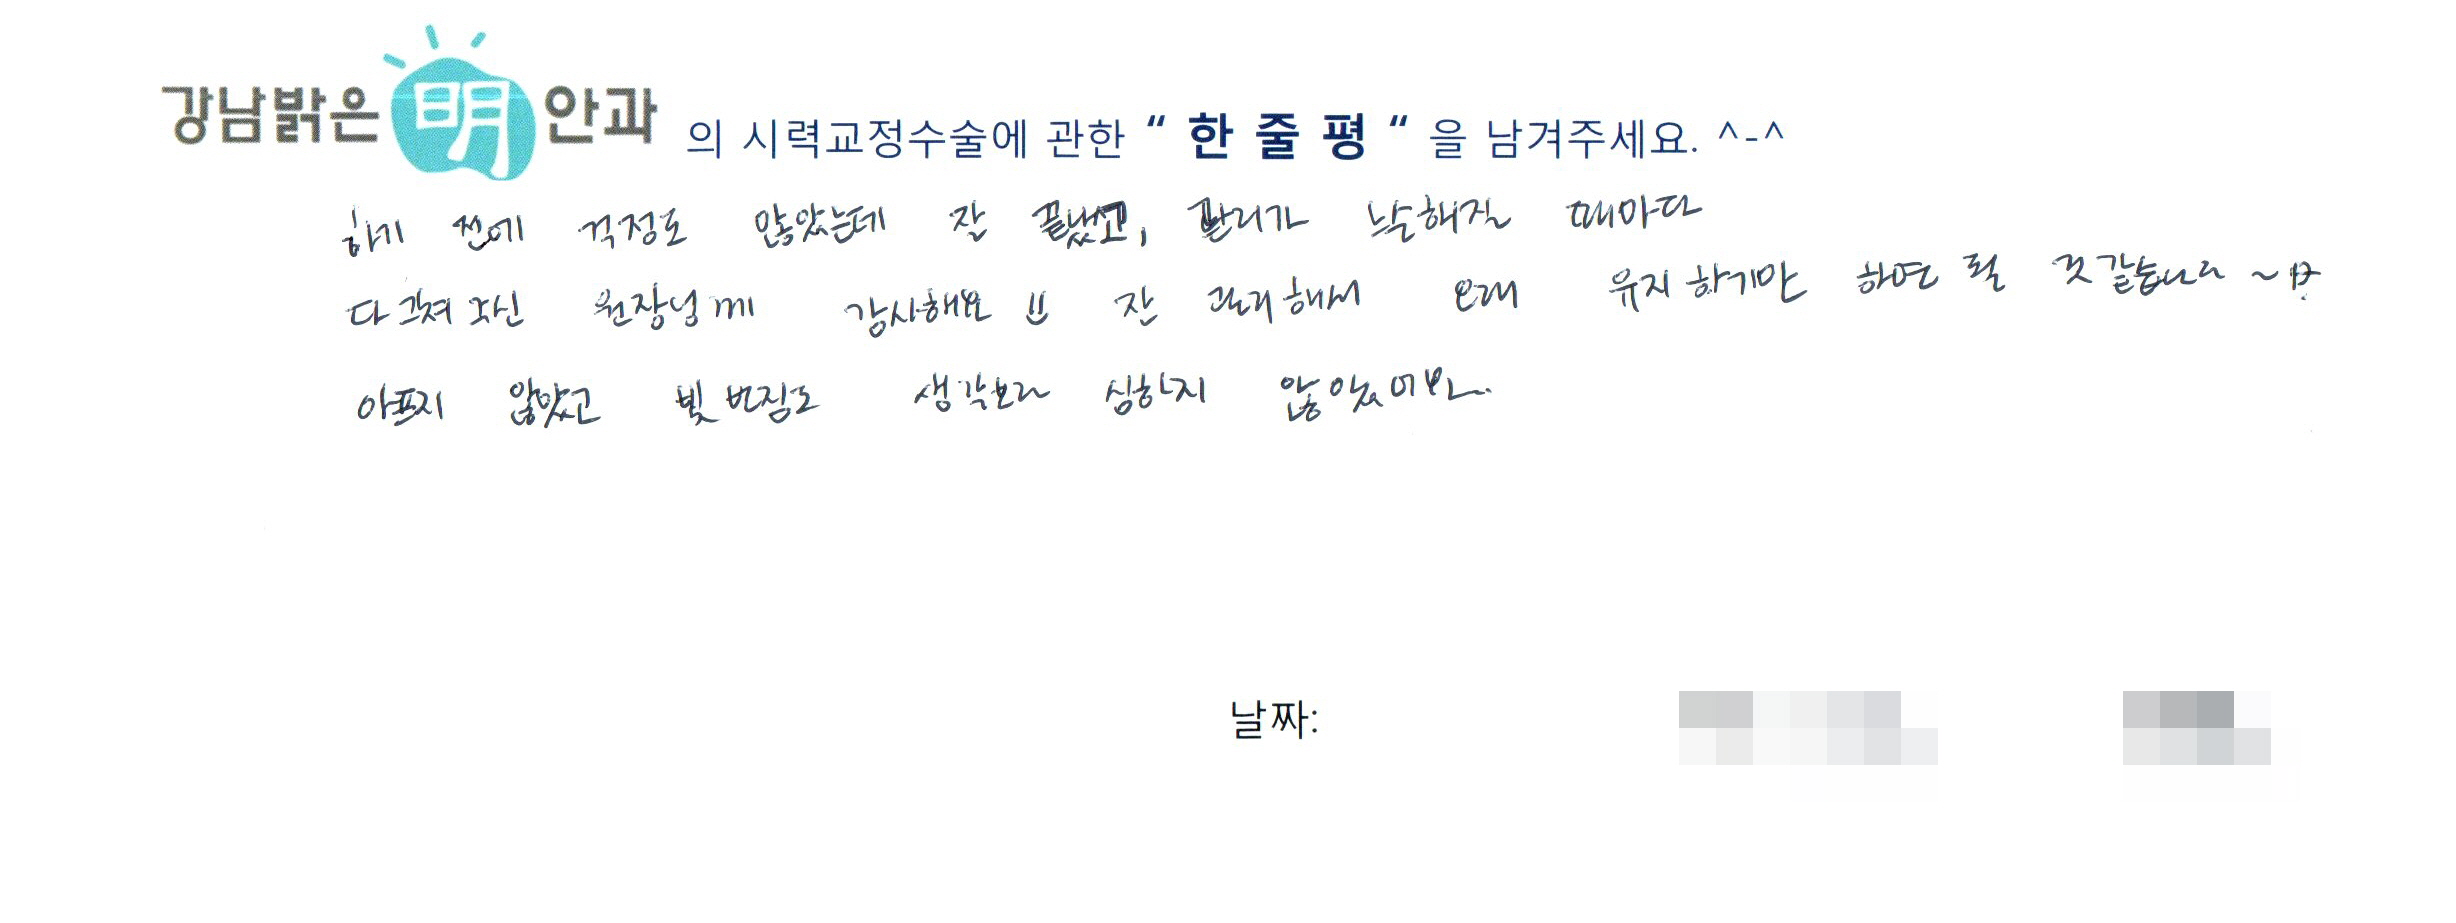 강남밝은 明 안과 의 시력교정수술에 관한 “ 한 줄 평 “ 을 남겨주세요. ^-^
하기 전에 걱정도 많았는데 잘 끝났고, 관리가 느슨해질 때마다
다그쳐 주신 원장님께 감사해요!! 잘 관리해서 오래 유지하기만 하면 될 것 같습니다~
아프지 않았고 빛 번짐도 생각보다 심하지 않았어요..
날짜: